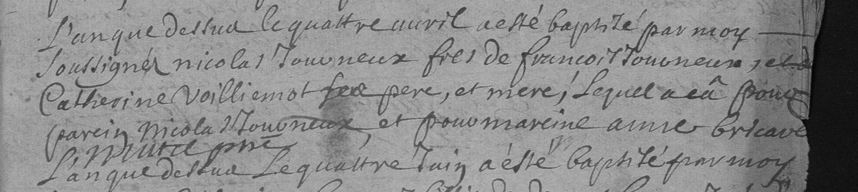 L'an que dessus le quattre auril a esté baptisé par moy
soussignéz nicolas Touvneux fils de francois Touvneux, et de
Catherine Voilliemot pere, et mere, Lequel a eû pour
parein Nicolas Touvneux, et pour mareine anne bricave
L'an que dessus Le quattre Juin a esté baptisé par moy